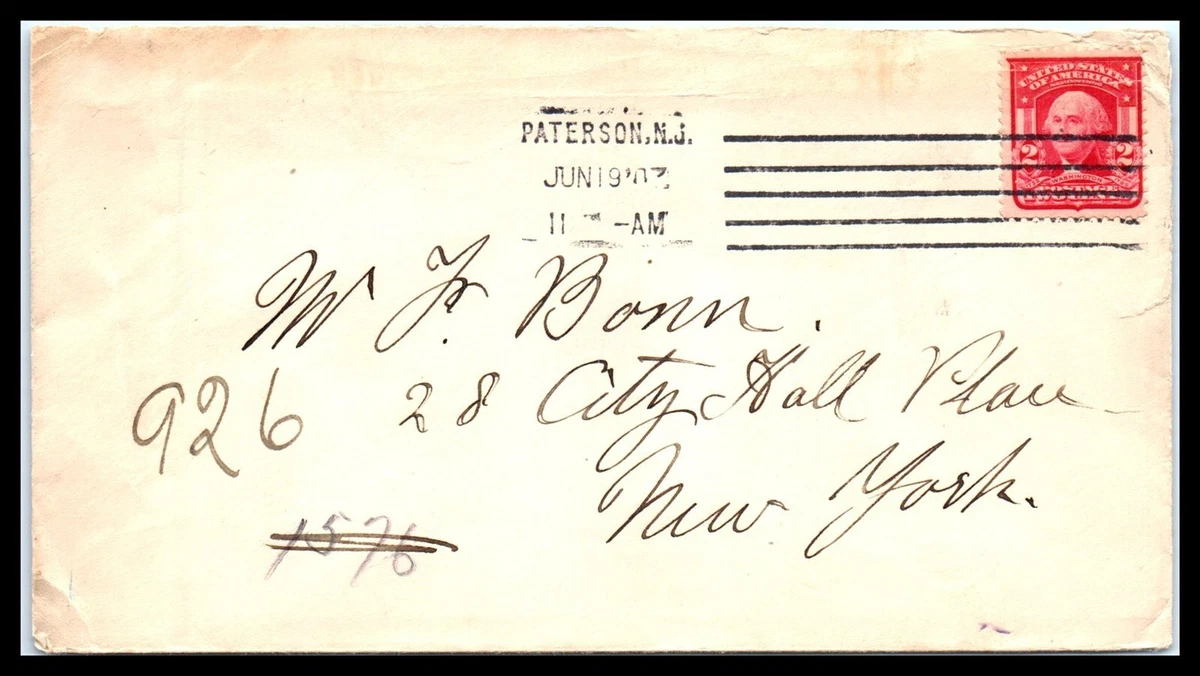 PATERSON, N.J.
JUN 19 '07
11 - AM
UNITED STATES
OF AMERICA
2 2
WASHINGTON
Mr Fr. Bonn.
28 City Hall Place
New York.
926
1576